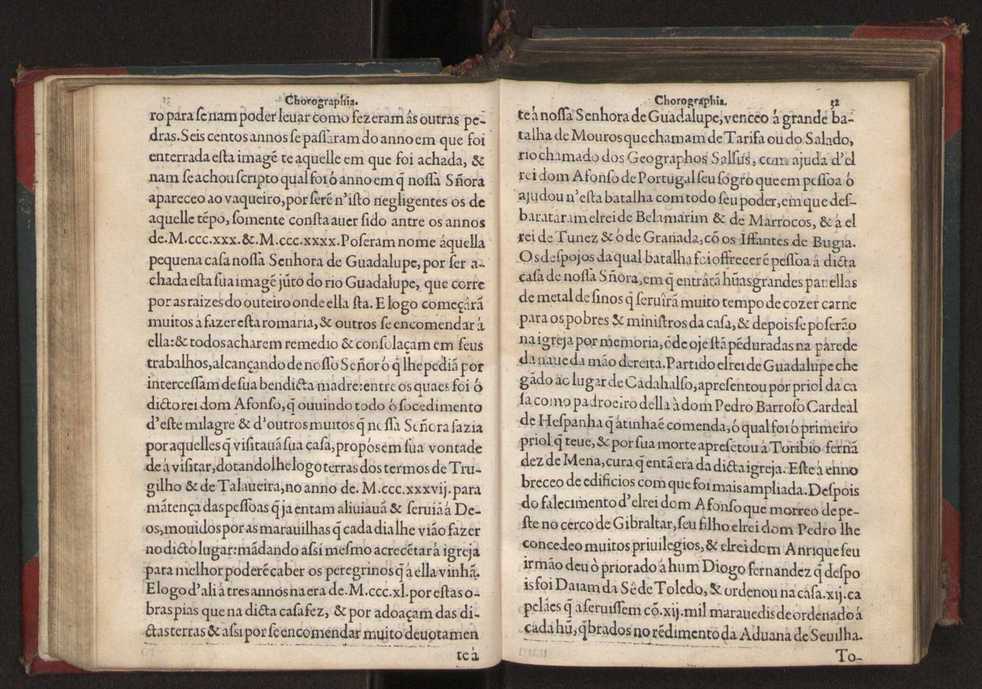 Chorographia.
ro para se nam poder leuar como fezeram ás outras pe-
dras. Seis centos annos se passaram do anno em que foi
enterrada esta imagẽ te aquelle em que foi achada, &
nam se achou scripto qual foi ó anno em q̃ nossa Sñora
apareceo ao vaqueiro, por serẽ n'isto negligentes os de
aquelle tẽpo, somente consta auer sido antre os annos
de. M.ccc.xxx. &. M.ccc.xxxx. Poseram nome áquella
pequena casa nossa Senhora de Guadalupe, por ser a-
chada esta sua imagẽ jũto do rio Guadalupe, que corre
por as raizes do outeiro onde ella sta. E logo começárã
muitos á fazer esta romaria, & outros se encomendar á
ella: & todos acharem remedio & consolaçam em seus
trabalhos, alcançando de nosso Señor ó q̃ lhe pediã por
intercessam de sua bendicta madre: entre os quaes foi ó
dicto rei dom Afonso, q̃ ouuindo todo ó socedimento
d'este milagre & d'outros muitos q̃ nossa Señora fazia
por aquelles q̃ visitauã sua casa, propós em sua vontade
de á visitar, dotandolhe logo terras dos termos de Tru-
gilho & de Talaueira, no anno de. M.ccc.xxxvij. para
mãtença das pessoas q̃ ja entam aliuiauã & seruiã á De-
os, mouidos por as marauilhas q̃ cada dia lhe viáo fazer
no dicto lugar: mãdando assi mesmo acrecẽtar á igreja
para melhor poderẽ caber os peregrinos q̃ á ella vinhã.
E logo d'ali á tres annos na era de. M.ccc.xl. por estas o-
bras pias que na dicta casa fez, & por adoaçam das di-
ctas terras & assi por se encomendar muito deuotamen
te á
Chorographia. 52
te á nossa Senhora de Guadalupe, venceo á grande ba-
talha de Mouros que chamam de Tarifa ou do Salado,
rio chamado dos Geographos Salsus, com ajuda d'el
rei dom Afonso de Portugal seu sogro que em pessoa ó
ajudou n'esta batalha com todo seu poder, em que des-
barataram elrei de Belamarim & de Marrocos, & á el
rei de Tunez & ó de Granada, cõ os Iffantes de Bugia.
Os despojos da qual batalha foi offrecer ẽ pessoa á dicta
casa de nossa Sñora, em q̃ entrárã hũas grandes panellas
de metal de sinos q̃ seruírã muito tempo de cozer carne
para os pobres & ministros da casa, & depois se poserão
na igreja por memoria, ôde oje stã pẽduradas na párede
da naue da mão dereita. Partido elrei de Guadalupe che
gãdo ao lugar de Cadahalso, apresentou por priol da ca
sa como padroeiro della á dom Pedro Barroso Cardeal
de Hespanha q̃ á tinha ẽ comenda, ó qual foi ó primeiro
priol q̃ teue, & por sua morte apresẽtou á Toribio fernã
dez de Mena, cura q̃ entã era da dicta igreja. Este á enno
breceo de edificios com que foi mais ampliada. Despois
do falecimento d'elrei dom Afonso que morreo de pe-
ste no cerco de Gibraltar, seu filho elrei dom Pedro lhe
concedeo muitos priuilegios, & elrei dom Anrique seu
irmão deu ó priorado á hum Diogo fernandez q̃ despo
is foi Daiam da Sê de Toledo, & ordenou na casa. xij. ca
pelães q̃ a seruissem cõ. xij. mil marauedis de ordenado á
cada hũ, q̃brados no rẽdimento da Aduana de Seuilha.
To-